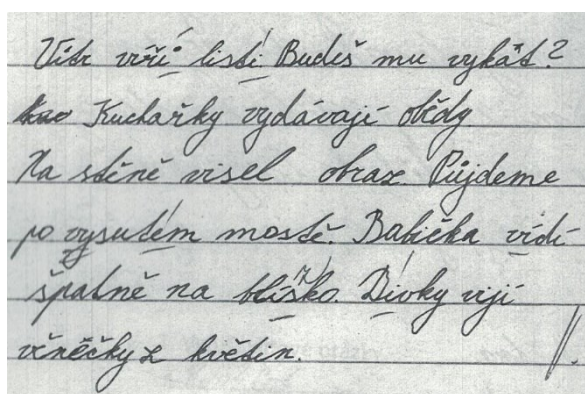 Vítr víří listí Budeš mu vykát?
Kuchařky vydávají obědy
Na stěně visel obraz. Půjdeme
po vysutém mostě. Babička vidí
špatně na blízko. Dívky vijí
věnečky z květin.